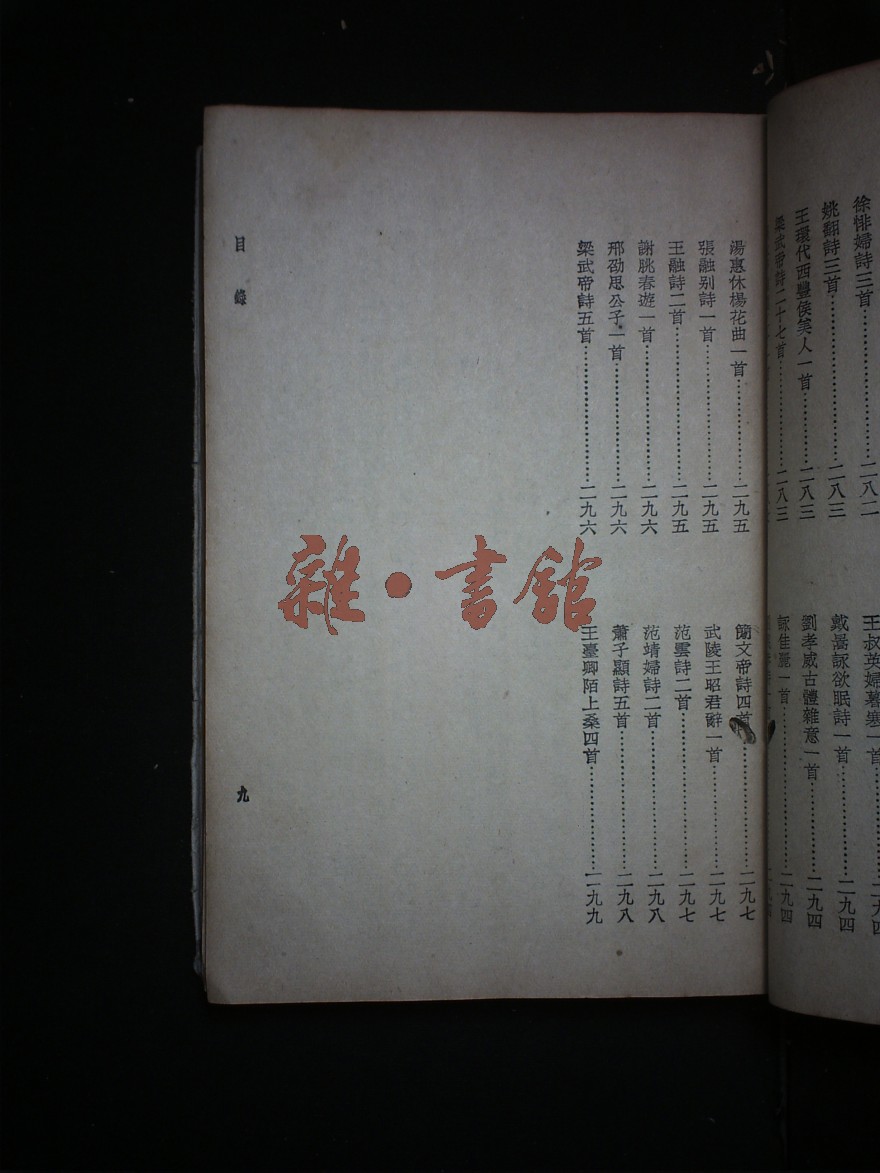 徐悱婦詩三首……二八二
姚翻詩三首……二八三
王環代西豐侯美人一首……二八三
梁武帝詩二十七首……二八三
王叔英婦暮寒一首……二九四
戴暠詠欲眠詩一首……二九四
劉孝威古體雜意一首……二九四
詠佳麗一首……二九四
湯惠休楊花曲一首……二九五
張融別詩一首……二九五
王融詩二首……二九五
謝朓春遊一首……二九六
邢劭思公子一首……二九六
梁武帝詩五首……二九六
簡文帝詩四首……二九七
武陵王昭君辭一首……二九七
范雲詩二首……二九七
范靖婦詩二首……二九八
蕭子顯詩五首……二九八
王臺卿陌上桑四首……二九九
目錄
九
雜·書館